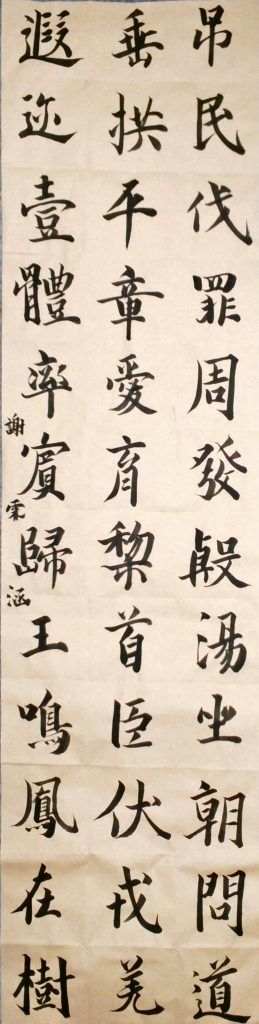 吊民伐罪周發殷湯坐朝問道
垂拱平章愛育黎首臣伏戎羌
遐迩壹體率賓歸王鳴鳳在樹
謝霂涵